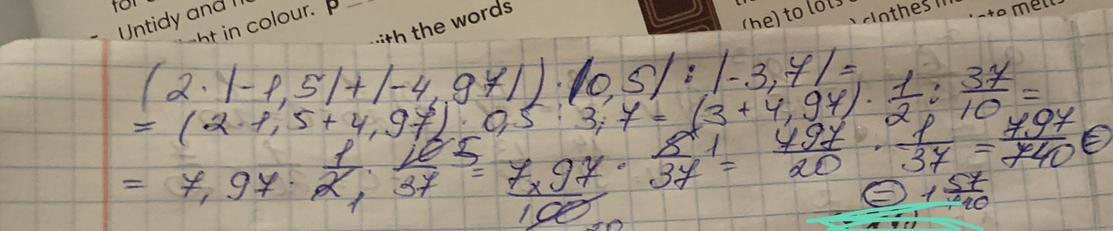 Untidy and
ht in colour. P
ith the words
(he) to lots
clothes
(2·|-1,5|+|-4,97|)·|0,5|:|-3,7|=
= (2·1,5+4,97)·0,5:3,7 = (3+4,97)·1/2:37/10=
= 7,97·1/2·10 5/37 = 797/100·5 1/37 = 797/20·1/37 = 797/740 =
= 1 57/740